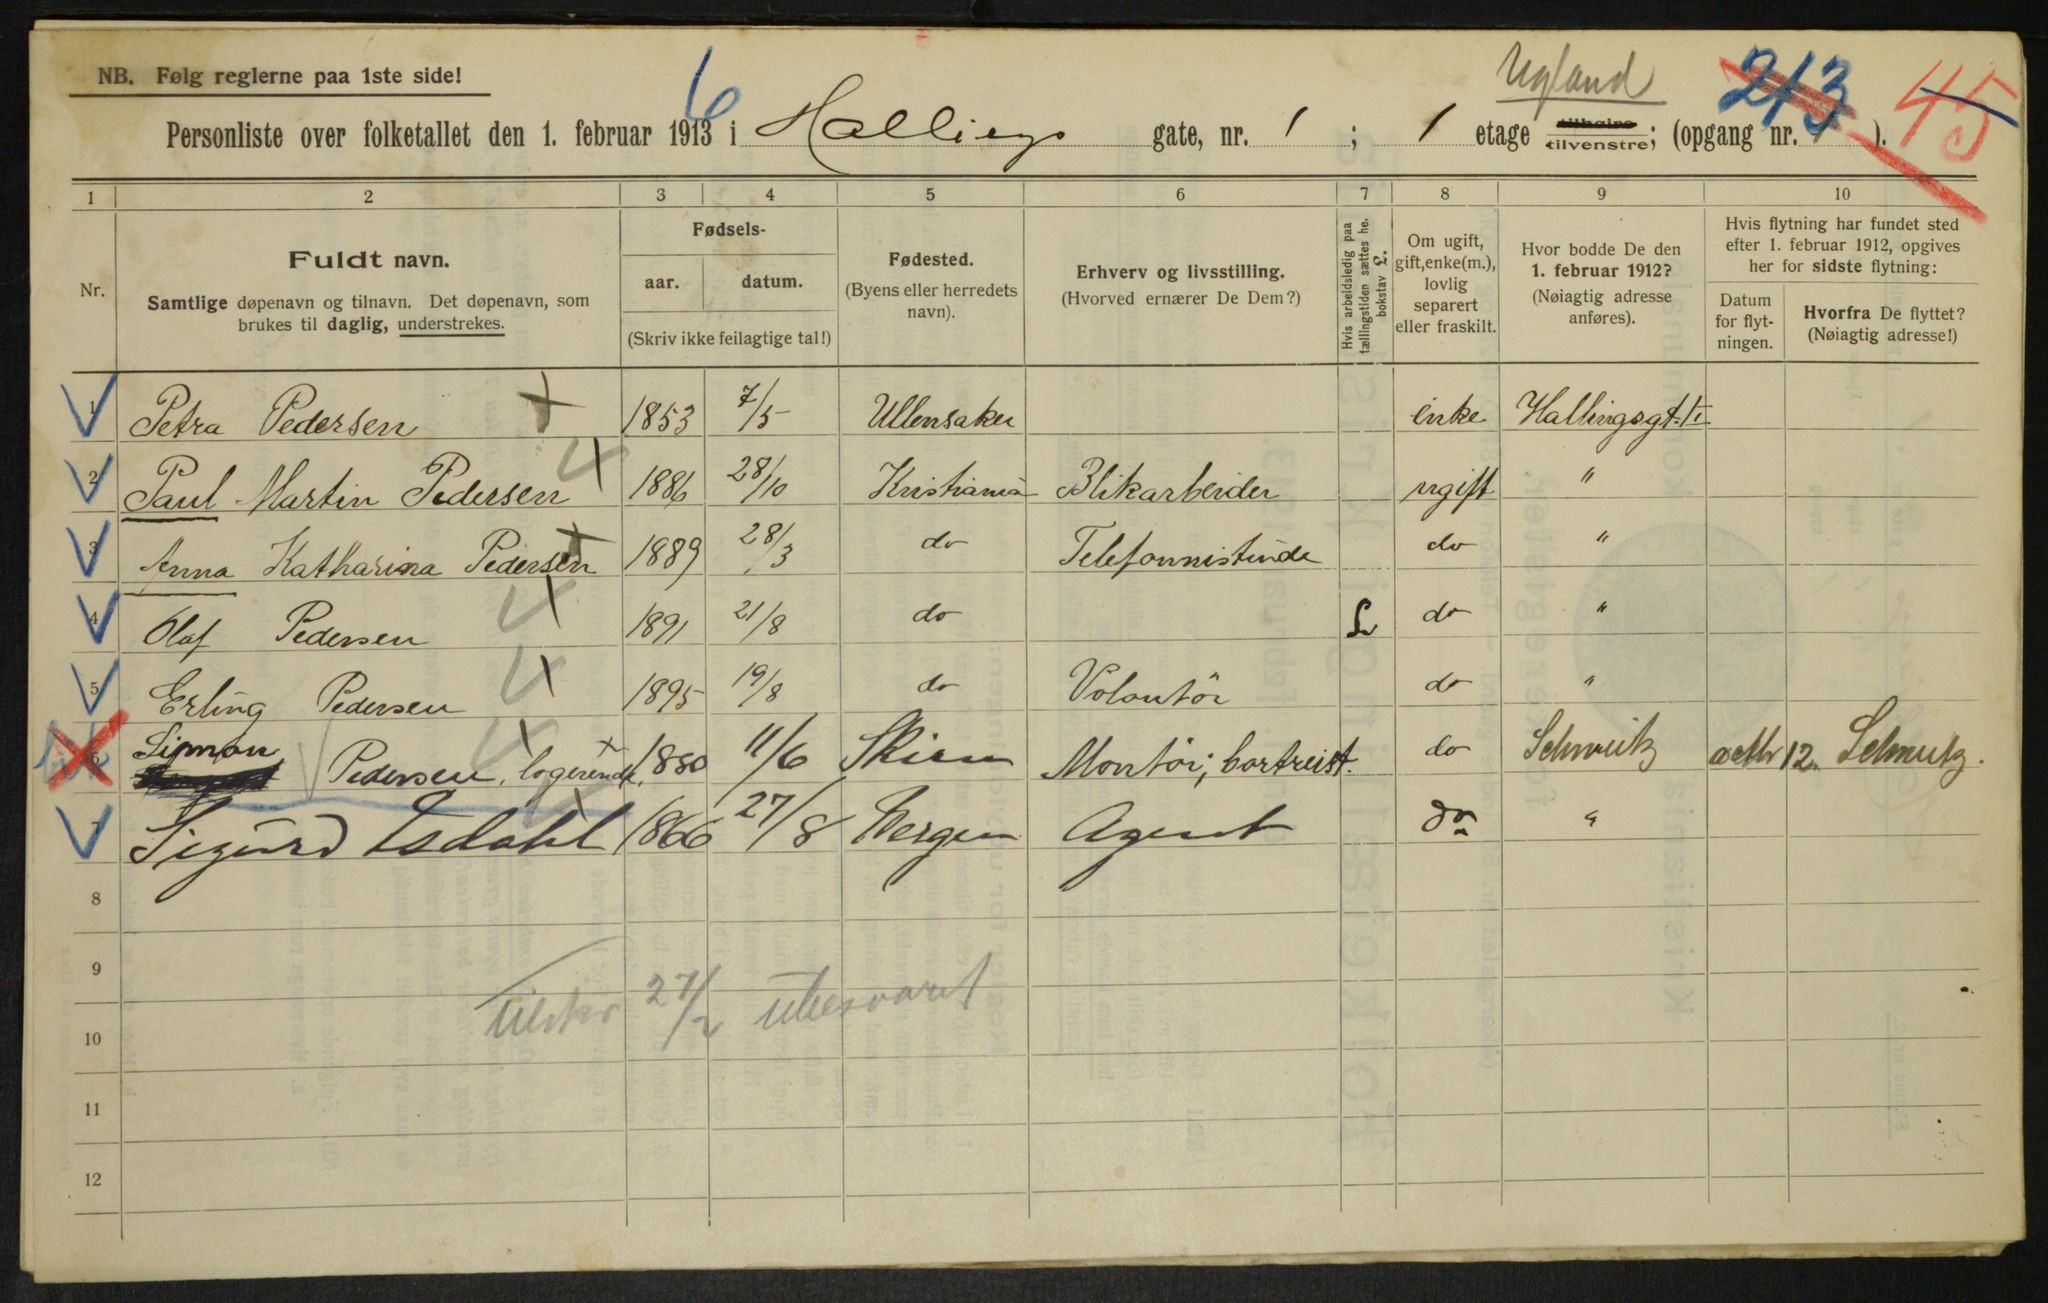 Ugland
6
213
45
NB. Følg reglerne paa 1ste side!
Personliste over folketallet den 1. februar 1913 i Hallings gate, nr. 1 ; 1 etage tilhøire tilvenstre; (opgang nr. ).
1 2 3 4 5 6 7 8 9 10
Nr.
Fuldt navn.
Samtlige døpenavn og tilnavn. Det døpenavn, som
brukes til daglig, understrekes.
Fødsels-
aar. datum.
(Skriv ikke feilagtige tal!)
Fødested.
(Byens eller herredets
navn).
Erhverv og livsstilling.
(Hvorved ernærer De Dem?)
Hvis arbeidsledig paa
tællingstiden sættes he.
bokstav L.
Om ugift,
gift, enke(m.),
lovlig
separert
eller fraskilt.
Hvor bodde De den
1. februar 1912?
(Nøiagtig adresse
anføres).
Hvis flytning har fundet sted
efter 1. februar 1912, opgives
her for sidste flytning:
Datum
for flyt-
ningen.
Hvorfra De flyttet?
(Nøiagtig adresse!)
1 Petra Pedersen 1853 7/5 Ullensaker enke Hallingsgt. 1 I
2 Paul Martin Pedersen 1886 28/10 Kristiania Blikarbeider ugift "
3 Anna Katharina Pedersen 1889 28/3 do Telefonnistinde do "
4 Olaf Pedersen 1891 21/8 do L do "
5 Erling Pedersen 1895 19/8 do Volontör do "
6 Simon Pedersen, logerende, 1880 11/6 Skien Montör; bortreist. do Schweitz octbr 12. Schweitz.
7 Sigurd Isdahl 1866 27/8 Bergen Agent do "
8
9
tilskr 27/2 ubesvart
10
11
12